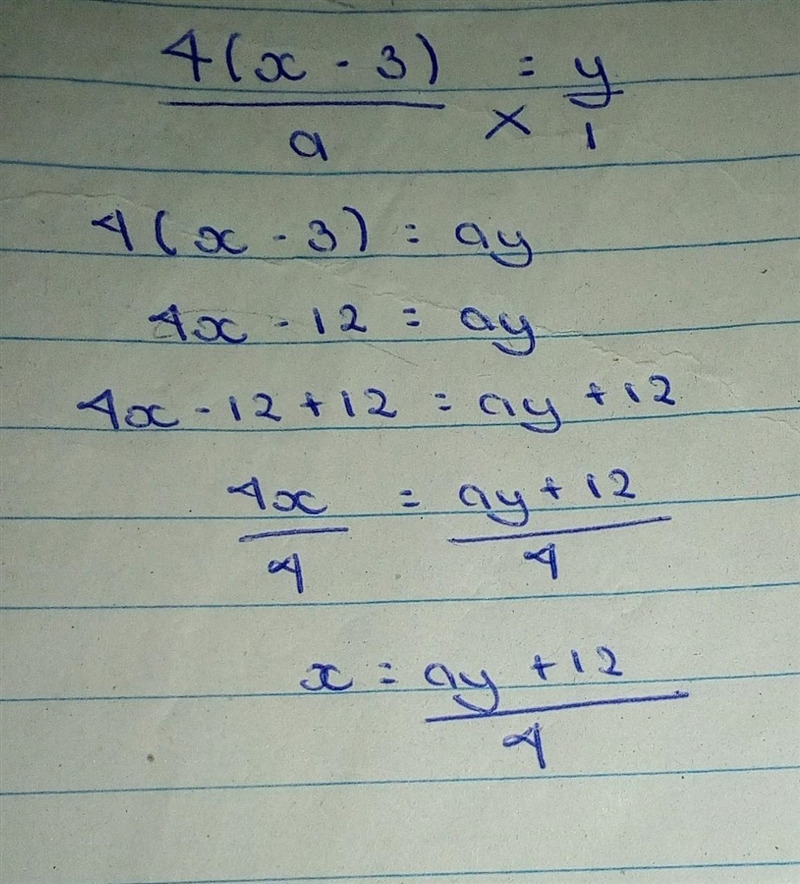 4(x - 3) = y
a × 1
4(x - 3) = ay
4x - 12 = ay
4x - 12 + 12 = ay + 12
4x = ay + 12
4 4
x = ay + 12
4